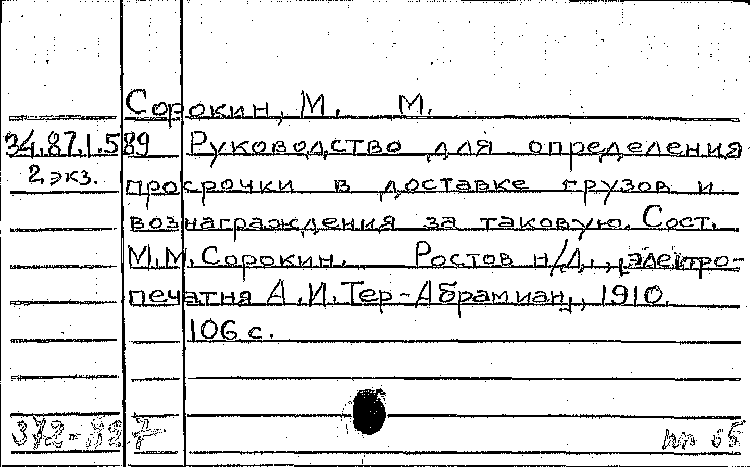 Сорокин, М. М.
34.87.1.589 Руководство для определения
2 экз. просрочки в доставке грузов и
вознаграждения за таковую. Сост.
М.М.Сорокин. Ростов н/Д., электро-
печатня А.И.Тер-Абрамиан, 1910.
106 с.
372-827